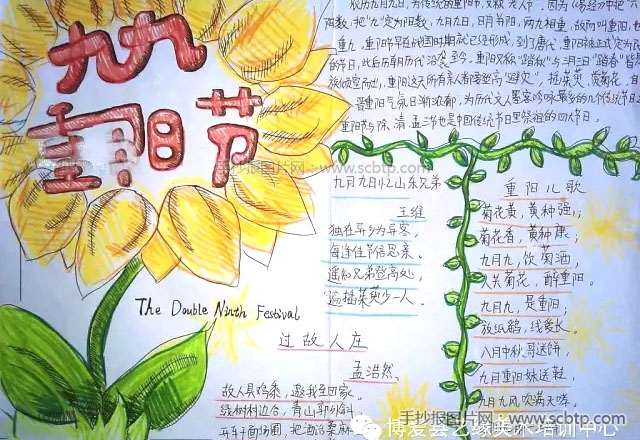 九九
重阳节
农历九月九日,为传统的重阳节,又称"老人节"。因为《易经》中把
阳数,把"九"定为阳数,九月九日,日月并阳,两九相重,故而叫重阳,也
重九,重阳节早在战国时期就已经形成,到了唐代,重阳被正式定为民
的节日,此后历朝历代沿袭至今。重阳又称"踏秋"与三月三日"踏春"
族倾室而出,重阳这天所有亲人都要登高"避灾",插茱萸、赏菊花。自
晋重阳气氛日渐浓郁,为历代文人墨客吟咏最多的几个传统节日之
重阳节与除、清、盂三节也是中国传统节日里祭祖的四大节日。
手抄报图片网 - www.scbtp.com
九月九日忆山东兄弟
王维
独在异乡为异客,
每逢佳节倍思亲。
遥知兄弟登高处,
遍插茱萸少一人。
重阳儿歌
菊花黄,黄种强;
菊花香,黄种康;
九月九,饮菊酒,
人共菊花,醉重阳。
九月九,是重阳;
放纸鹞,线爱长。
八月中秋哥送饼,
九月重阳妹送鞋
九月九风吹满天哮。
The Double Ninth Festival
过故人庄
孟浩然
故人具鸡黍,邀我至田家。
绿树村边合,青山郭外斜。
开轩面场圃,把酒话桑麻。
手抄报图片网
www.scbtp.com
博爱会艺缘美术培训中心